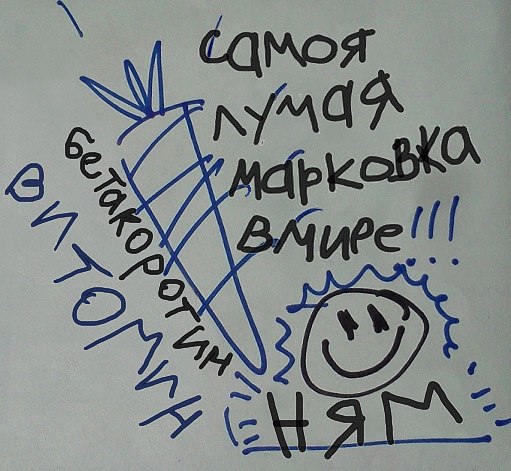 самоя
лумая
марковка
вмире!!!
бетакоротин
витомин
НЯМ